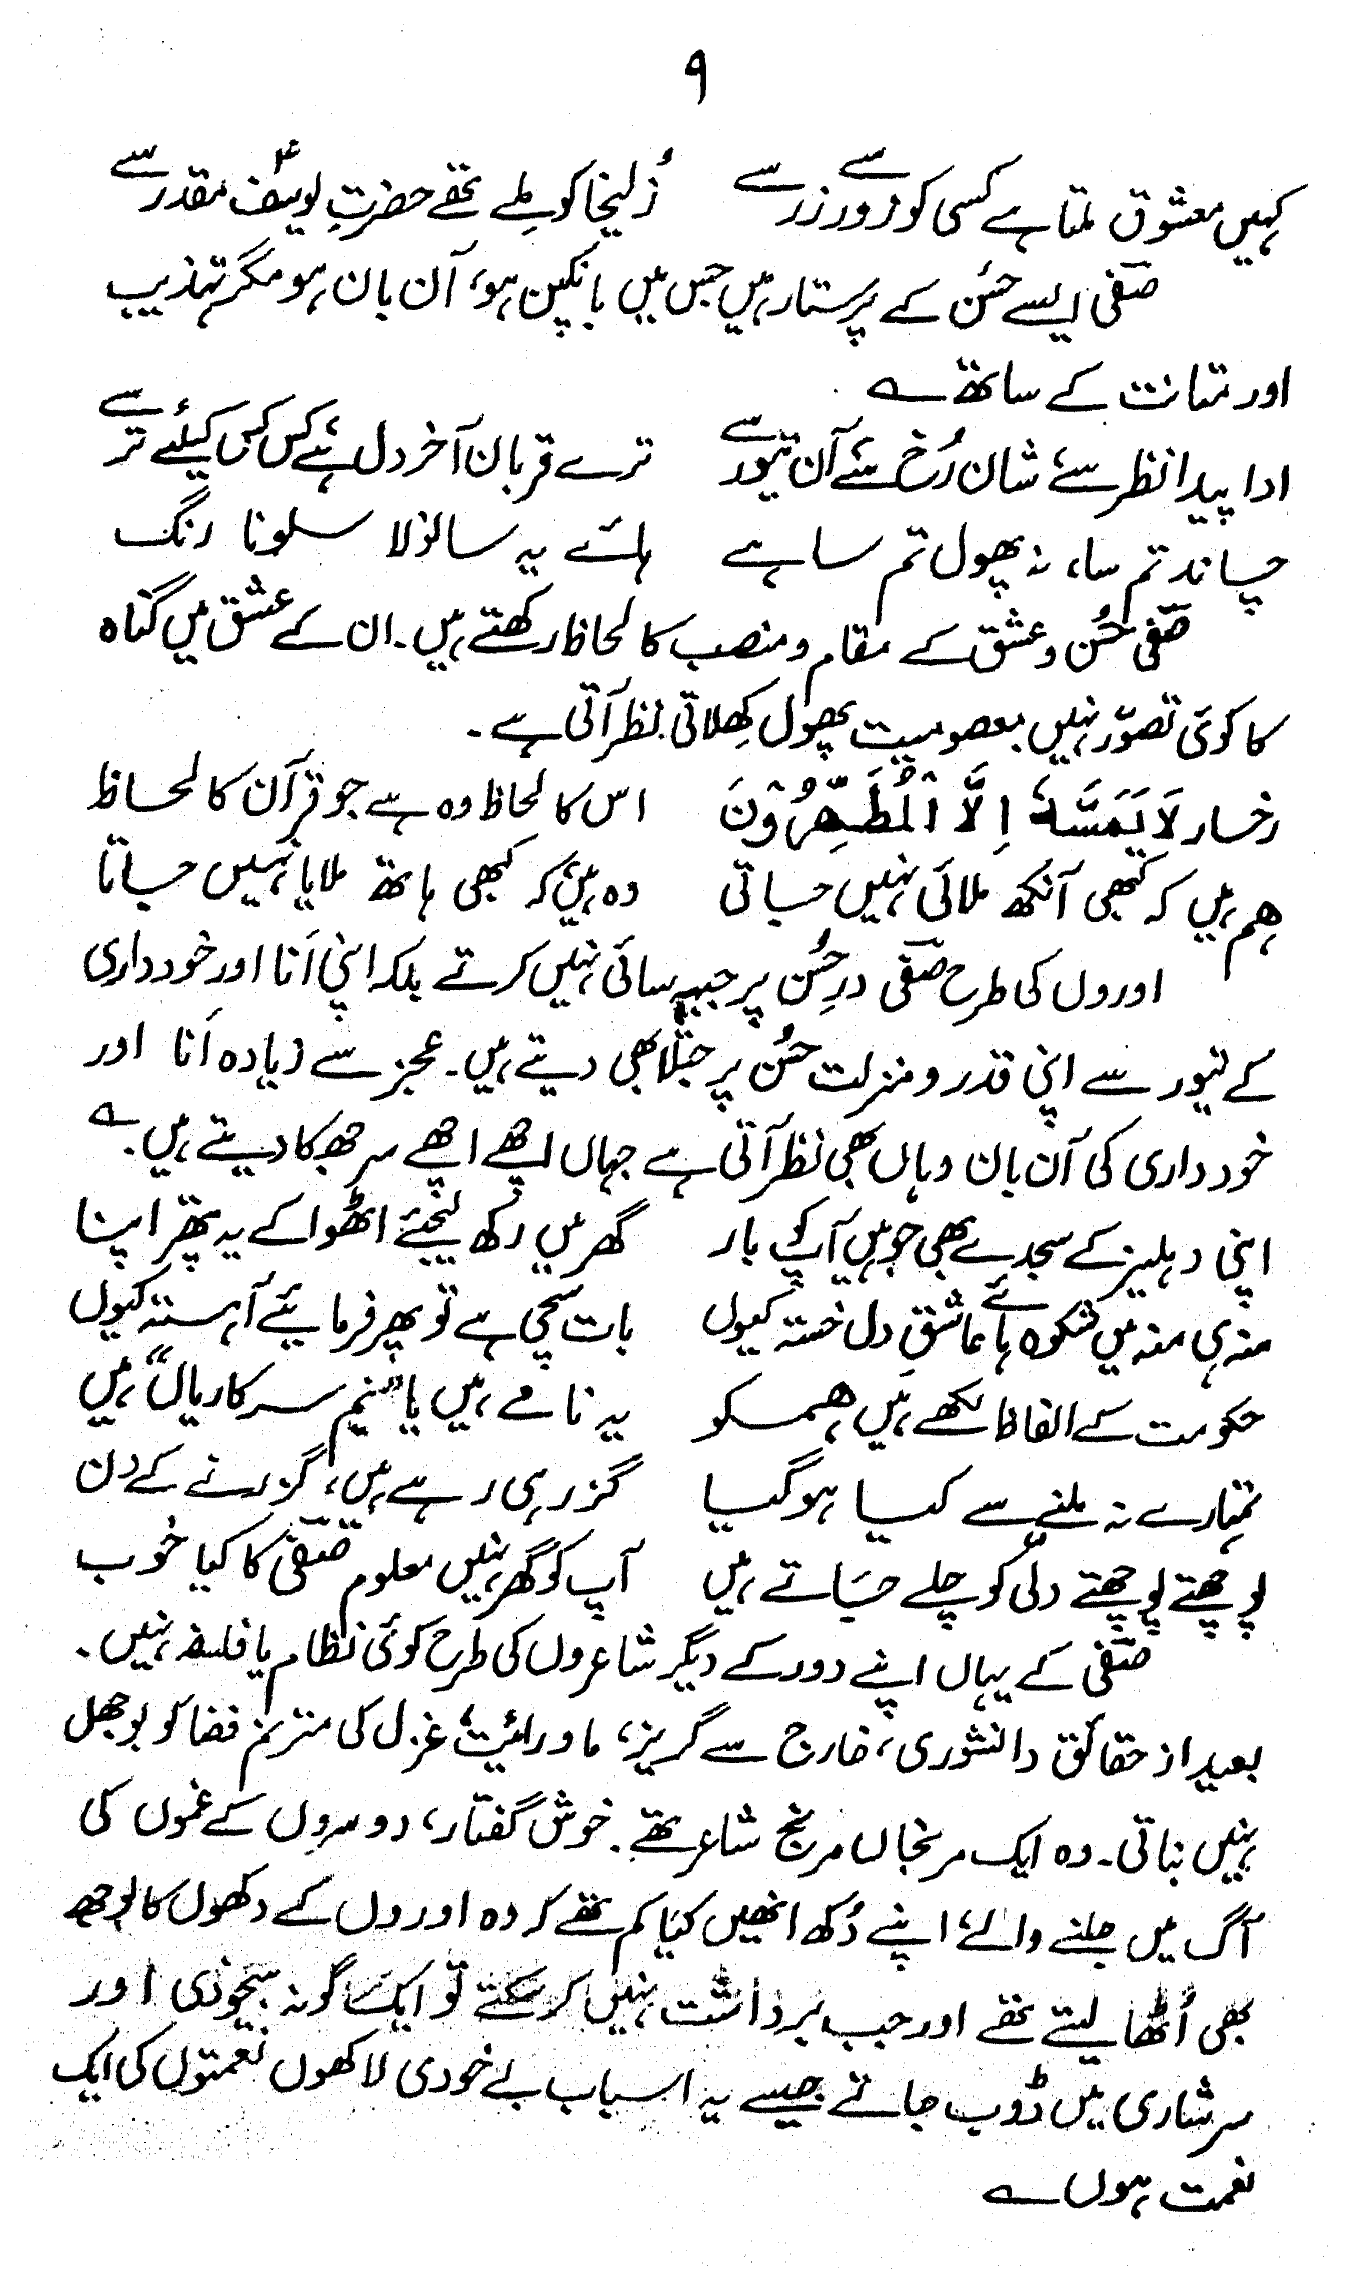 ۹
کہیں معشوق ملتا ہے کسی کو زور سے زر سے    زُلیخا کو ملے تھے حضرتِ یوسفؑ مقدر سے
صفی ایسے حسُن کے پرستار ہیں جس میں بانکپن ہو، آن بان ہو مگر تہذیب
اور متانت کے ساتھ ؎
ادا پیدا نظر سے، شان رُخ سے، آن تیور سے    ترے قربان آخر دل ہے، کس کس کیلئے ترسے
چاند تم سا، نہ پھول تم سا ہے    ہائے یہ سانولا سلونا رنگ
صفی حسُن و عشق کے مقام و منصب کا لحاظ رکھتے ہیں۔ ان کے عشق میں گناہ
کا کوئی تصوّر نہیں معصومیت پھول کِھلاتی نظر آتی ہے۔
رخسار لَا یَمَسَّہٗ اِلَّا الْمُطَہَّرُوْنَ    اس کا لحاظ وہ ہے جو قرآن کا لحاظ
ہم ہیں کہ کبھی آنکھ ملائی نہیں جاتی    وہ ہیں، کہ کبھی ہاتھ ملایا نہیں جاتا
اوروں کی طرح صفی درِ حُسن پر جبیہ سائی نہیں کرتے بلکہ اپنی اَنا اور خودداری
کے تیور سے اپنی قدر و منزلت حسُن پر جتلا بھی دیتے ہیں۔ عجز سے زیادہ اَنا اور
خودداری کی آن بان وہاں بھی نظر آتی ہے جہاں اچھے اچھے سر جھکا دیتے ہیں۔ ؎
اپنی دہلیز کے سجدے بھی جو ہیں آپ کو بار    گھر میں رکھ لیجئے اٹھوا کے یہ پتھر اپنا
منہ ہی منہ میں شکوہ ہائے عاشقِ دل خستہ کیوں    بات سچی ہے تو پھر فرمائیے آہستہ کیوں
حکومت کے الفاظ لکھے ہیں ہمسکو    یہ نامے ہیں یا "نیم سرکاریاں" ہیں
تمہارے نہ ملنے سے کیا ہو گیا    گزر ہی رہے ہیں، گزرنے کے دن
پوچھتے پوچھتے دلی کو چلے جاتے ہیں    آپ کو گھر نہیں معلوم صفی کا کیا خُوب
صفی کے یہاں اپنے دور کے دیگر شاعروں کی طرح کوئی نظام یا فلسفہ نہیں۔
بعید از حقائق دانشوری، خارج سے گریز، ماورائیت، غزل کی مترنم فضا کو بوجھل
نہیں بناتی۔ وہ ایک مرنجاں مرنج شاعر تھے۔ خوش گفتار، دوسروں کے غموں کی
آگ میں جلنے والے، اپنے دُکھ انھیں کیا کم تھے کہ وہ اوروں کے دکھوں کا بوجھ
بھی اُٹھا لیتے تھے اور جب برداشت نہیں کر سکتے تو ایک گونہ بیخودی اور
سرشاری میں ڈوب جاتے جیسے یہ اسباب بے خودی لاکھوں نعمتوں کی ایک
نعمت ہوں ؎